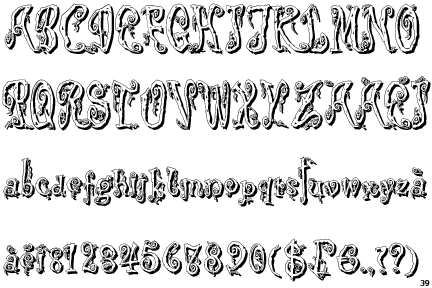 ABCDEFGHIJKLMNO
PQRSTUVWXYZÀÅÉÎ
abcdefghijklmnopqrstuvwxyzà
åéîø1234567890($£€.,!?)
39